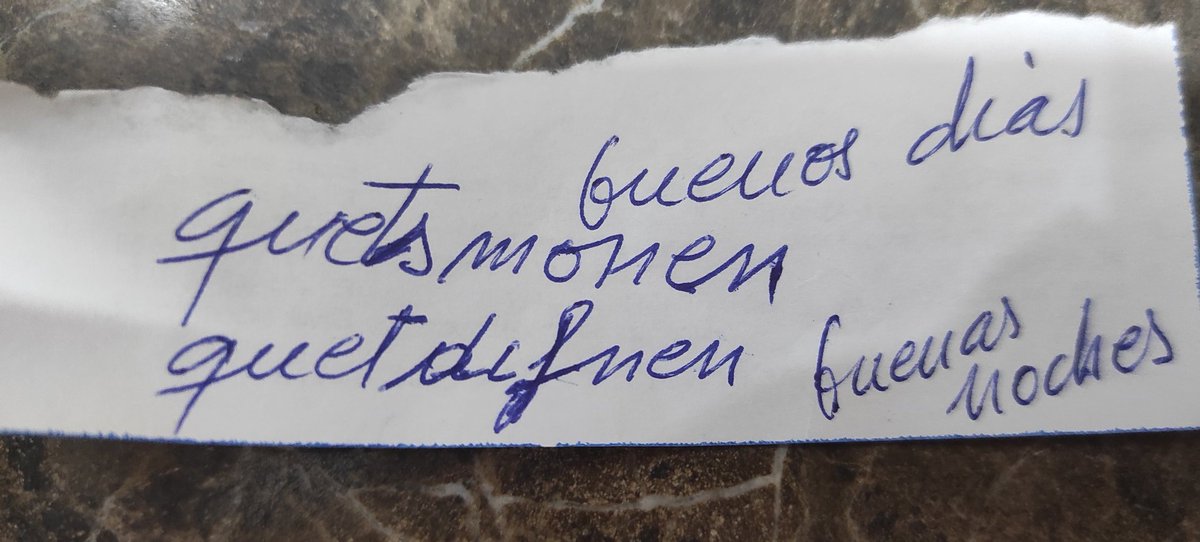 buenos dias
quetsmonen
quetdifnen buenas
noches